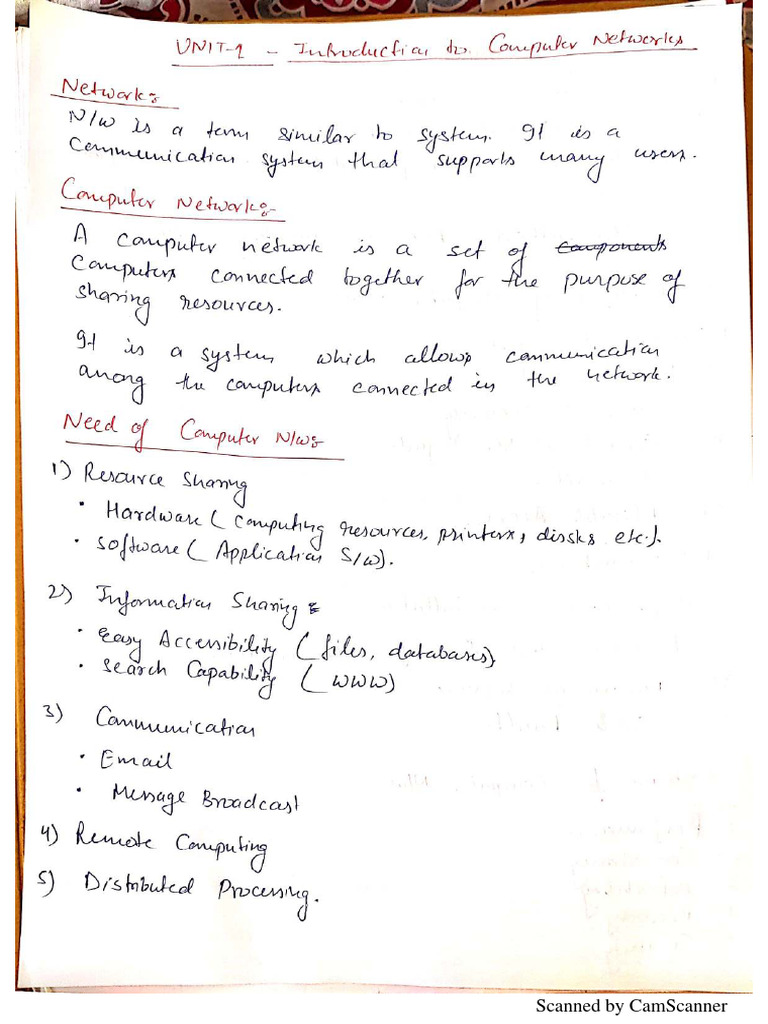 UNIT-1 - Introduction to Computer Networks
Network:
N/w is a term similar to system. It is a
Communication system that supports many users.
Computer Network:-
A computer network is a set of Components
Computers connected together for the purpose of
sharing resources.
It is a system which allows communication
among the computers connected in the network.
Need of Computer N/ws
1) Resource Sharing
• Hardware ( Computing resources, printers, dissks etc.).
• Software ( Application S/w).
2) Information Sharing
• Easy Accessibility ( files, databases)
• Search Capability ( WWW)
3) Communication
• Email
• Message Broadcast
4) Remote Computing
5) Distributed Processing.
Scanned by CamScanner